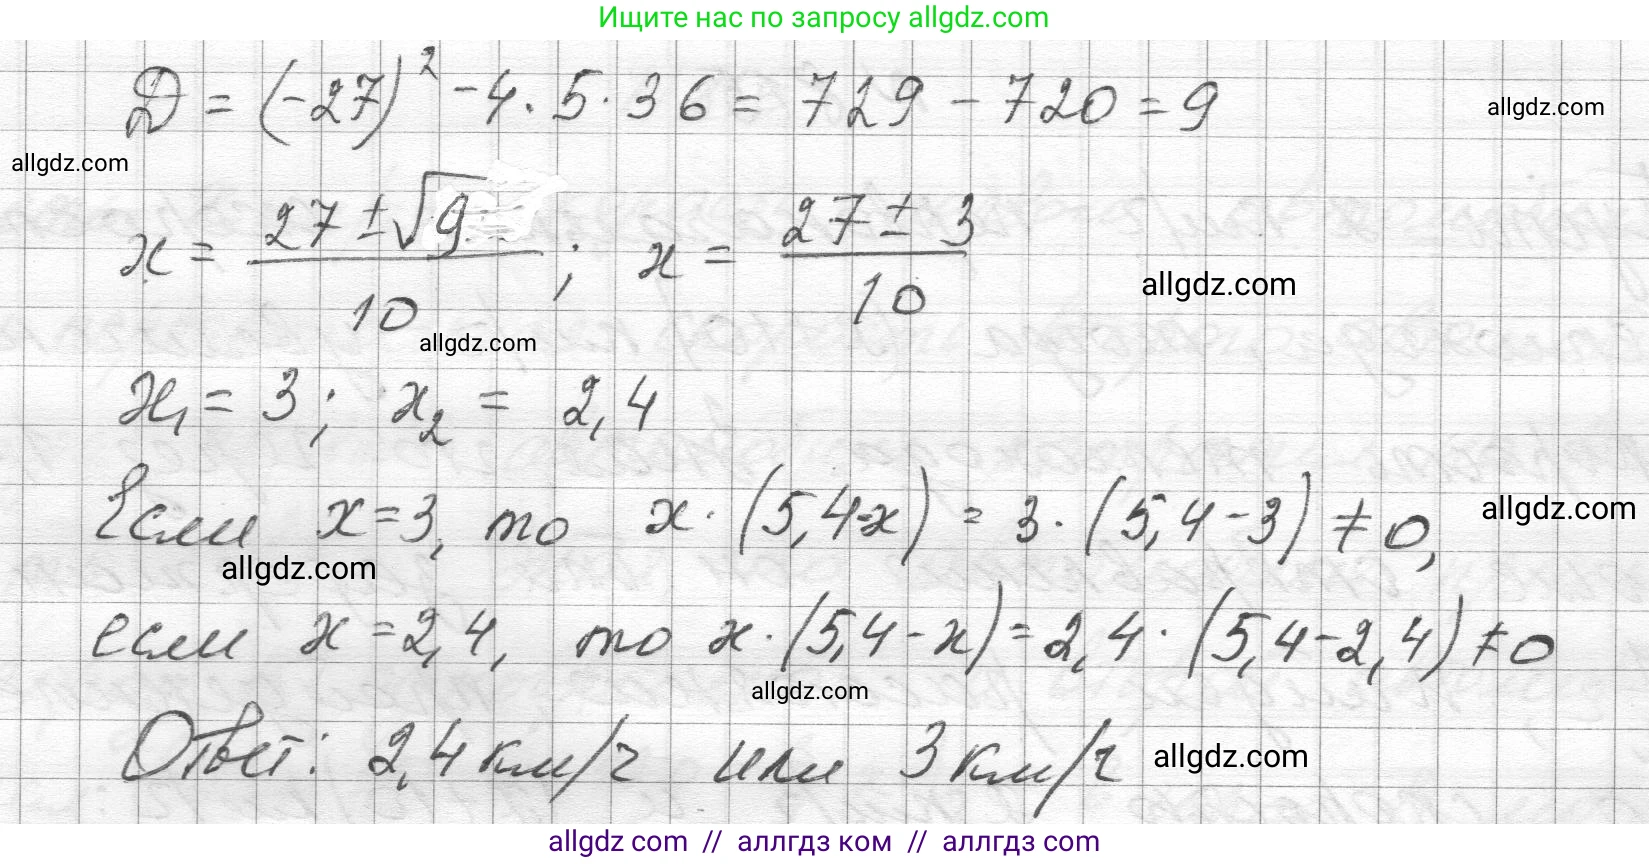 Ищите нас по запросу allgdz.com
D = (-27)² - 4 · 5 · 36 = 729 - 720 = 9
allgdz.com
allgdz.com
x = (27 ± √9)/10 ; x = (27 ± 3)/10
allgdz.com
allgdz.com
x₁ = 3 ; x₂ = 2,4
Если x = 3, то x · (5,4-x) = 3 · (5,4 - 3) ≠ 0,
allgdz.com
allgdz.com
если x = 2,4, то x · (5,4 - x) = 2,4 · (5,4 - 2,4) ≠ 0
allgdz.com
Ответ: 2,4 км/ч или 3 км/ч
allgdz.com
allgdz.com // аллгдз ком // аллгдз com